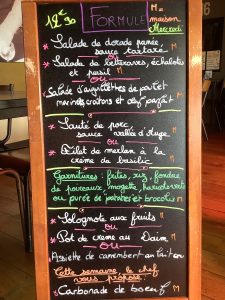 12€90 FORMULE M = maison
Mercredi
* Salade de dorade panée
sauce tartare M
ou
* Salade de betteraves, échalotes
et persil M
ou
* Salade d'aiguillettes de poulet
marinés, croutons et œuf parfait M
* Sauté de porc M
sauce vallée d'Auge
ou
* Filet de merlan à la M
crème de basilic
Garnitures : frites, riz, fondue
de poireaux, mogette, haricots verts
ou purée de patates et brocolis M
* Solognote aux fruits M
ou
* Pot de crème au Daim M
ou
* Assiette de camembert au lait cru
Cette semaine, le chef
vous propose :
* Carbonade de boeuf M